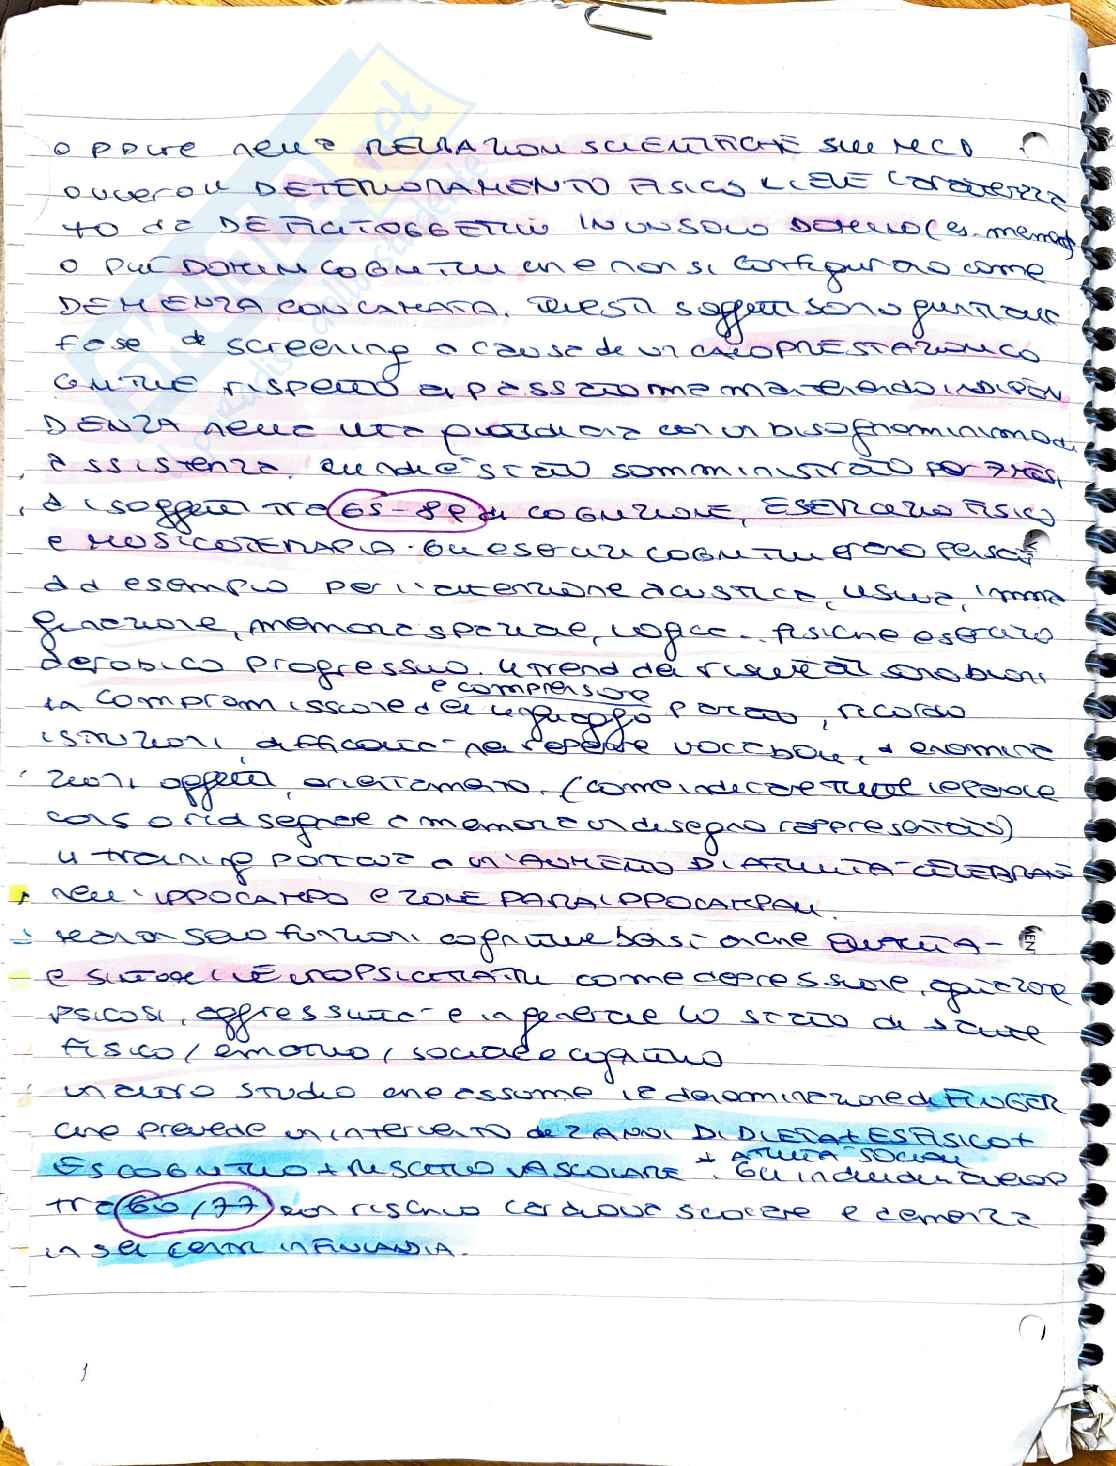 oppure nella RELAZIONI SCIENTIFICHE sul MCD
ovvero il DETERIORAMENTO FISICO LIEVE caratterizza
to da DEFICIT OGGETTIVI IN UN SOLO DOMINIO (es. memoria
o più DOMINI COGNITIVI che non si configurano come
DEMENZA CONCLAMATA. Questi soggetti sono giunti alla
fase di screening a causa de un CALO PRESTAZIONI CO
GNITIVE rispetto al passato ma mantenendo INDIPEN
DENZA nella vita quotidiana con un bisogno minimo di
assistenza. Quindi è stato somministrato per 7 mesi
a soggetti tra 65-89 di COGNIZIONE, ESERCIZIO FISICO
e MUSICOTERAPIA. Gli esercizi COGNITIVI erano pensati
ad esempio per l'attenzione acustica, visiva, imma
ginazione, memoria spaziale, logica.. fisiche esercizio
aerobico progressivo. Il trend dei risultati sono buoni
e comprensione
la compromissione del linguaggio parlato, ricordo
istruzioni, difficoltà nel reperire vocaboli, denomina
zioni oggetti, orientamento. (come indicare tutte le parole
corso o ridisegnare a memoria un disegno rappresentato)
il training portava a un'AUMENTO DI ATTIVITÀ CELEBRALE
nell'IPPOCAMPO e ZONE PARAIPPOCAMPALI.
non solo funzioni cognitive basi anche QUALITÀ-
e SINTOMI NEUROPSICHIATRICI come depressione, agitazione
psicosi, aggressività e in generale lo stato di salute
fisico/emotivo/sociale e cognitivo
un altro studio che assume la denominazione di FINGER
che prevede un intervento de 2 ANNI DI DIETA + ES FISICO +
ES COGNITIVO + RISCHIO VASCOLARE + ATTIVITÀ SOCIALI. Gli individui avevano
tra 60/77 con rischio cardiovascolare e demenza
in sei centri in FINLANDIA.
1